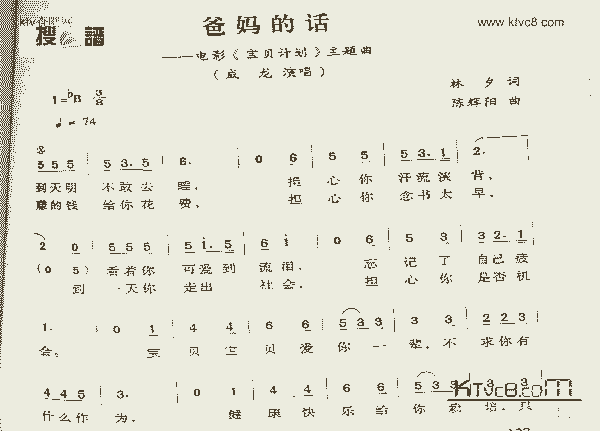 爸妈的话
www.ktvc8.com
搜谱
——电影《宝贝计划》主题曲
(成 龙 演唱)
1=♭B 3/8
♩=74
林 夕 词
陈辉阳 曲
5 5 5 | 5 3. 5 | 6. | 0 6 | 5 5 | 5 3. 1 | 2. |
到天明 不敢去 睡, 担 心 你 汗流浃 背,
赚的钱 给你花 费, 担 心 你 念书太 早,
2 0 | 5 5 5 | 5 1. 5 | 6 1 | 0 6 | 5 3 | 3 2. 1 |
(0 5) 看着你 可爱到 流泪, 忘 记 了 自己疲
到 一天你 走出 社会, 担 心 你 是否机
1. | 0 1 | 4 4 | 6 6 | 5 3 3 3 | 3 3 | 2 2 3 |
会。 宝 贝 宝 贝 爱 你 一 辈, 不 求你有
4 4 5 | 3. | 0 1 | 4 4 | 6 6 | 5 3 3 3 | 3 3
KTvc8.coM
什么作 为, 健 康 快 乐 给 你